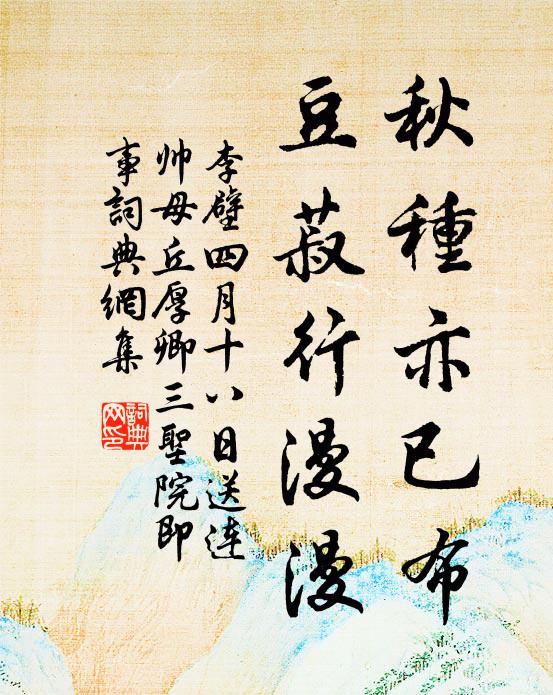 秋種亦已布
豆菽行漫漫
李壁四月十八日送連
帅母丘厚卿三聖院即
事詞典網集
詞典
网印